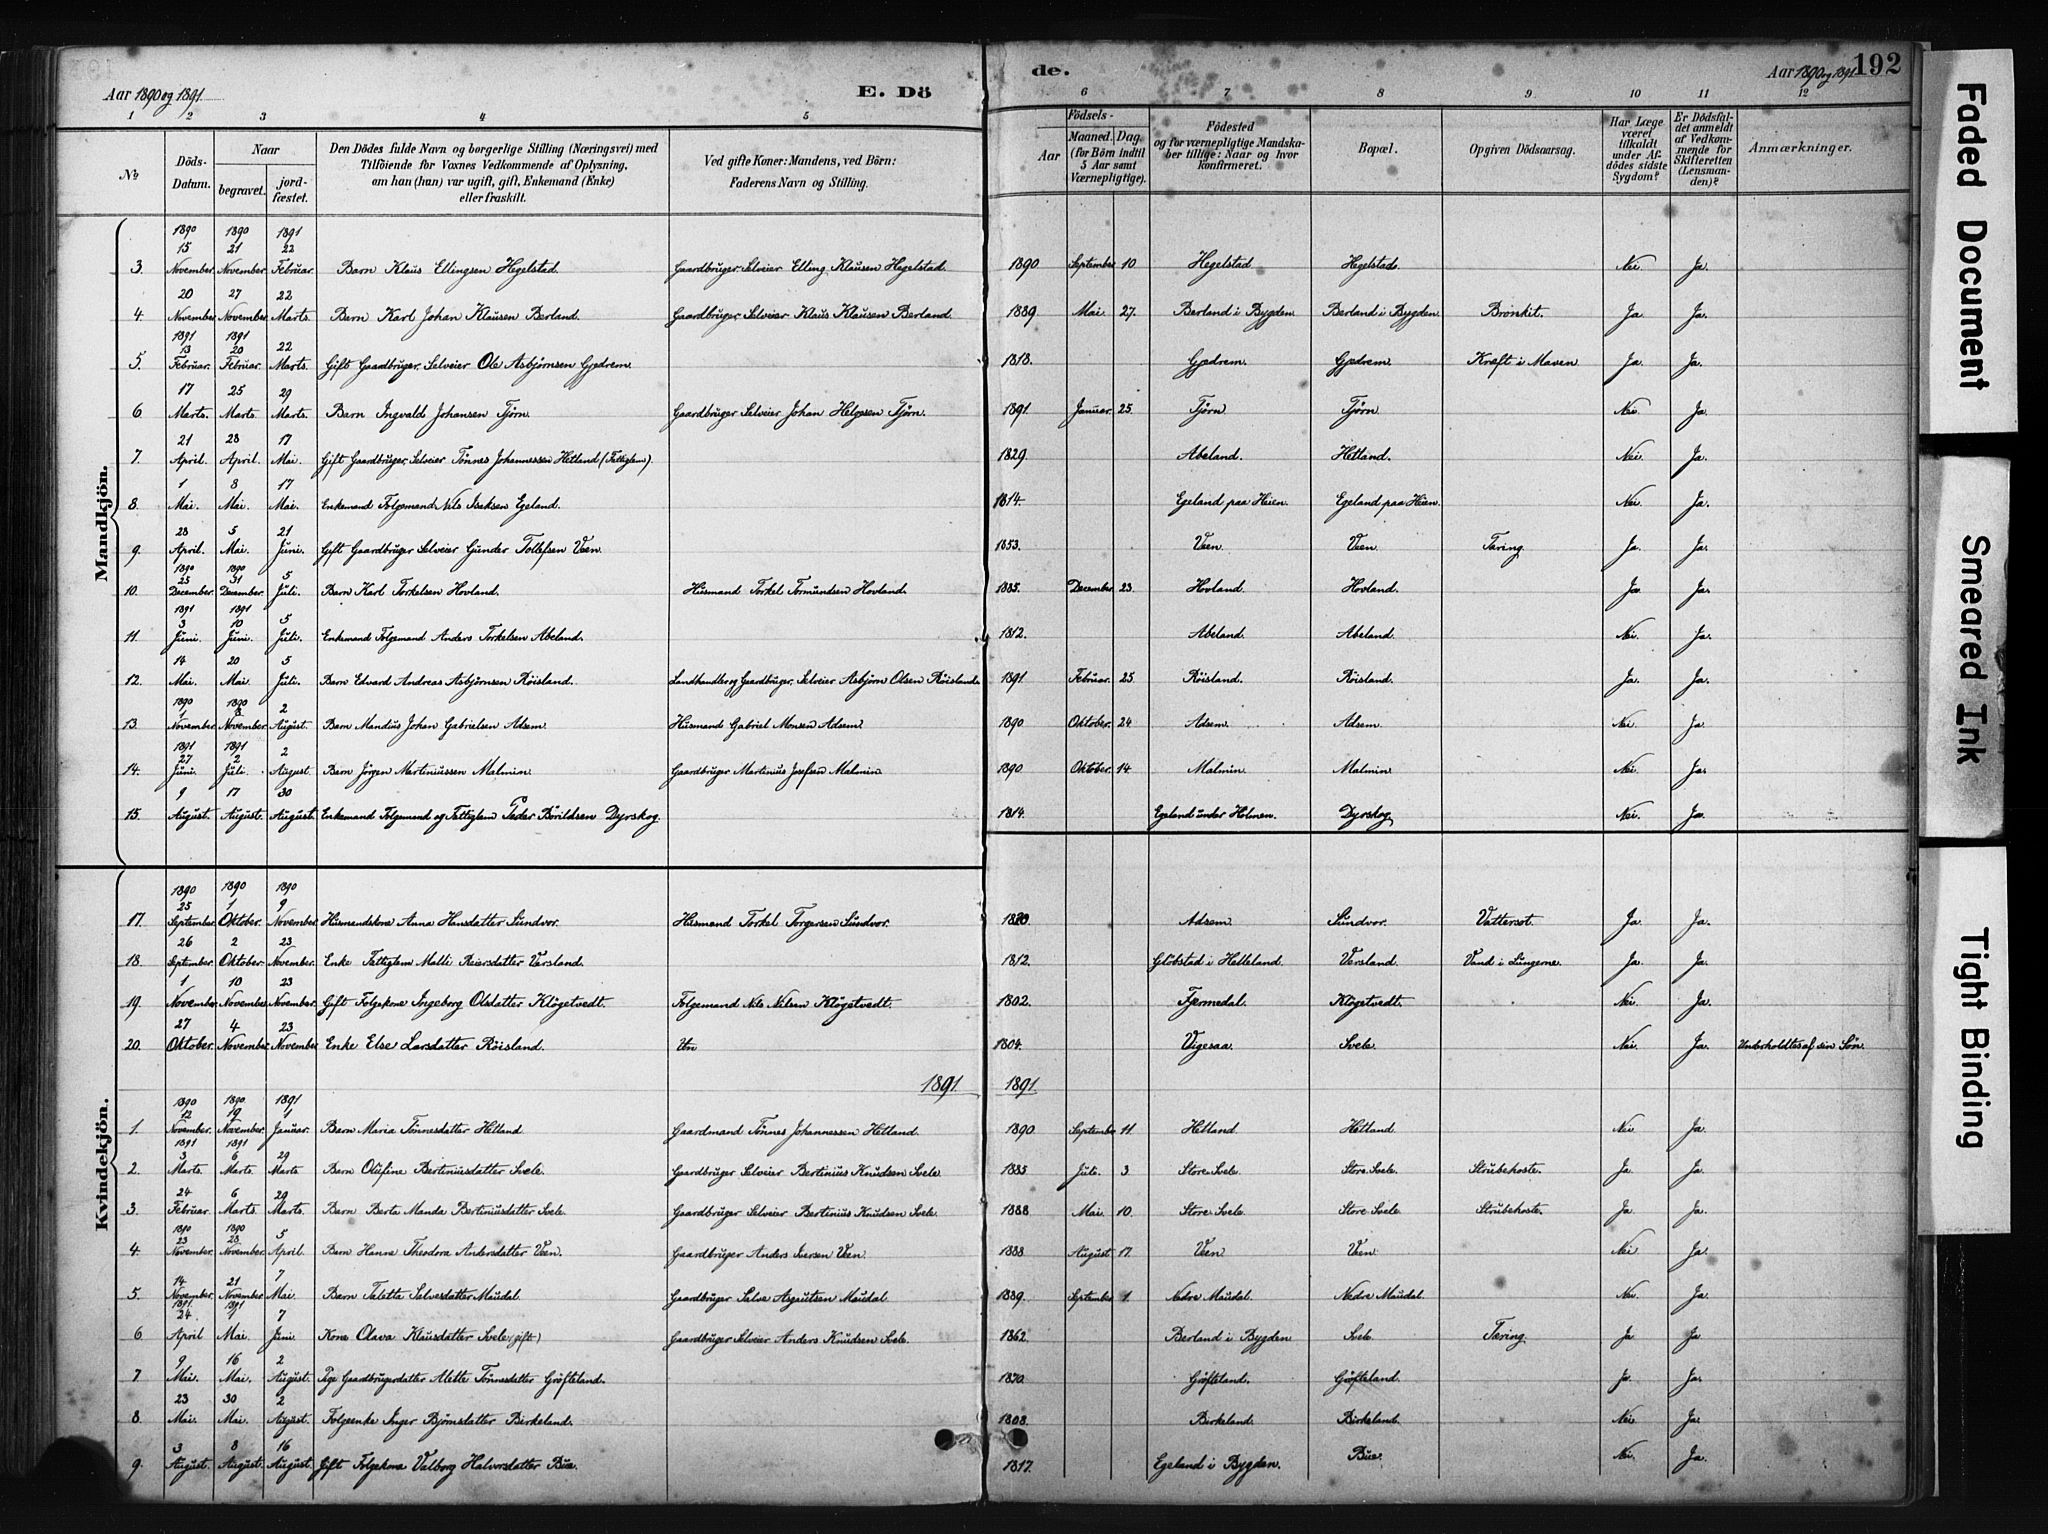 Aar 1890 og 1891
E. Dö
de.
Aar 1890 og 1891
192
1 2 3 4 5 6 7 8 9 10 11 12
No
Döds-Datum.
Naar
begravet.
jordfæstet.
Den Dödes fulde Navn og borgerlige Stilling (Næringsvei) med Tilföiende for Voxnes Vedkommende af Oplysning, om han (hun) var ugift, gift, Enkemand (Enke) eller fraskilt.
Ved gifte Koner: Mandens, ved Börn: Faderens Navn og Stilling.
Födsels-
Aar
Maaned. Dag.
(for Börn indtil 5 Aar samt Værnepligtige).
Födested og for værnepligtige Mandskaber tillige: Naar og hvor konfirmeret.
Bopæl.
Opgiven Dödsaarsag.
Har Læge været tilkaldt under Afdödes sidste Sygdom?
Er Dödsfaldet anmeldt af Vedkommende for Skifteretten (Lensmanden)?
Anmærkninger.
Mandkjön.
1890 1890 1891
15 21 22
3. November. November. Februar. Barn Klaus Ellingsen Hegelstad. Gaardbruger, Selveier Elling Klausen Hegelstad. 1890 September 10 Hegelstad Hegelstad. Nei. Ja.
20 27 22
4. November. November. Marts. Barn Karl Johan Klausen Berland. Gaardbruger, Selveier Klaus Klausen Berland 1889 Mai 27. Berland i Bygden Berland i Bygden. Bronkit. Ja Ja.
1891 1891
13 20 22
5. Februar. Februar. Marts. Gift Gaardbruger, Selveier Ole Asbjørnsen Gjedrem. 1818. Gjedrem. Gjedrem Kræft i Maven Ja Ja.
17 25 29
6 Marts. Marts. Marts. Barn Ingvald Johansen Tjörn. Gaardbruger Selveier Johan Helgesen Tjörn. 1891. Januar. 25. Tjörn Tjörn. Nei. Ja
21 28 17
7. April. April. Mai. Gift Gaardbruger, Selveier Tönnes Johannessen Hetland (Fattiglem). 1829 Abeland. Hetland. Nei. Ja.
1 8 17
8. Mai. Mai. Mai. Enkemand Folgemand Nils Iseksen Egeland. 1814. Egeland paa Heien. Egeland paa Heien. Nei. Ja.
28 5 21
9. April. Mai. Juni. Gift Gaardbruger Selveier Gunder Tollefsen Veen. 1853. Veen. Veen. Tæring. Ja. Ja.
1890 1890
25 31 5
10. December. December. Juli. Barn Karl Torkelsen Hovland. Husmand Torkel Tormundsen Hovland. 1885. December. 23. Hovland. Hovland. Ja. Ja.
1891 1891
3 10 5
11. Juni. Juni. Juli. Enkemand Folgemand Anders Torkelsen Abeland. 1812. Abeland. Abeland. Nei. Ja.
14 20 5
12. Mai. Mai. Juli. Barn Edvard Andreas Asbjörnsen Röisland. Landhandler og Gaardbruger, Selveier Asbjörn Olsen Röisland 1891 Februar. 25 Röisland. Röisland. Ja. Ja.
1890 1890
1 8 2
13. November. November. August. Barn Mandius Johan Gabrielsen Adsem. Husmand Gabriel Monsen Adsem. 1890 Oktober. 24 Adsem. Adsem. Nei. Ja
1891 1891
27 2 2
14. Juni. Juli. August. Barn Jörgen Martiniussen Malmin. Gaardbruger Martinius Josefsen Malmin. 1890 Oktober. 14 Malmin. Malmin. Nei. Ja.
9 17 30
15. August. August. August. Enkemand Folgemand og Fattiglem Peder Börildsen Dyrskog. 1814. Egeland under Holmen. Dyrskog Nei. Ja.
Kvindekjön.
1890 1890 1890
25 1 9
17. September. Oktober. November. Husmandskone Anna Hansdatter Sundvor. Husmand Torkel Torgersen Sundvor. Adsem. Sundvor. Vattersot. Ja Ja.
26 2 23
18. September. Oktober. November. Enke Fattiglem Malli Reiersdatter Versland. 1812. Glöbstad i Helleland. Versland. Vand i Lungerne. Ja. Ja.
1 10 23
19. November. November. November. Gift Folgekone Ingeborg Olsdatter Klögetvedt. Folgemand Nils Nilsen Klögetvedt. 1802. Fjermedal. Klögetvedt. Nei Ja.
27 4 23
20. Oktober. November. November. Enke Else Larsdatter Röisland. Un 1804. Vigesaa. Svele. Nei. Ja. Underholdtes af sin Søn.
1891 1891.
1890 1890 1891
12 19 1
1. November. November. Januar. Barn Maria Tönnesdatter Hetland. Gaardmand Tönnes Johannessen Hetland. 1890 September 11. Hetland. Hetland Nei Ja.
1891 1891
3 6 29
2. Marts. Marts. Marts Barn Olufine Bertiniusdatter Svele. Gaardbruger Selveier Bertinius Knudsen Svele. 1885 Juli. 3 Store Svele. Store Svele. Strubehoste. Ja. Ja.
24 6 29
3. Februar. Marts. Marts. Barn Berta Manda Bertiniusdatter Svele. Gaardbruger Selveier Bertinius Knudsen Svele. 1888 Mai. 10. Store Svele. Store Svele. Strubehoste. Ja. Ja.
1890 1890
23 28 5
4. November. November. April. Barn Hanne Theodora Andersdatter Veen. Gaardbruger Anders Iversen Veen. 1888 August. 17. Veen. Veen. Nei Ja.
14 21 7
5. November. November. Mai Barn Taletta Salvesdatter Maudal. Gaardbruger Salve Asgautsen Maudal. 1889. September. 1. Nedre Maudal. Nedre Maudal. Nei. Ja
1891. 1891
24 9 7
6 April Mai. Juni Kone Olava Klausdatter Svele (gift) Gaardbruger Selveier Anders Knudsen Svele. 1862. Berland i Bygden Svele. Tæring. Ja Ja
9 16 2
7 Mai. Mai. August. Pige Gaardbrugerdatter Alette Tönnesdatter Gröfteland. 1870. Gröfteland. Gröfteland. Ja. Ja.
23 30 2
8 Mai. Mai. August. Folgeenke Inger Bjørnsdatter Birkeland. 1808. Birkeland. Birkeland. Nei. Ja.
3 8 16
9. August. August. August. Gift Folgekone Valborg Halvorsdatter Bue. 1817. Egeland i Bygden. Bue. Nei. Ja.
Faded Document
Smeared Ink
Tight Binding